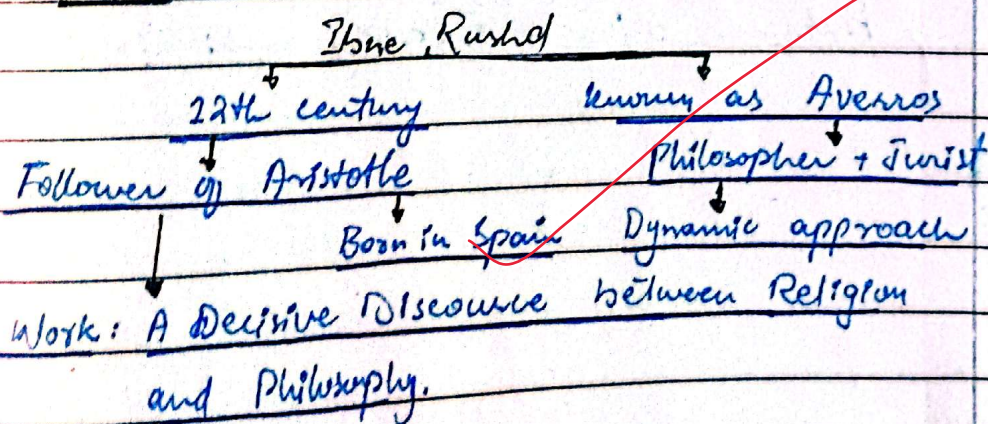 Ibne Rushd
12th century known as Averros
Follower of Aristotle Philosopher + Jurist
Born in Spain Dynamic approach
Work: A Decisive Discourse between Religion
and Philosophy.